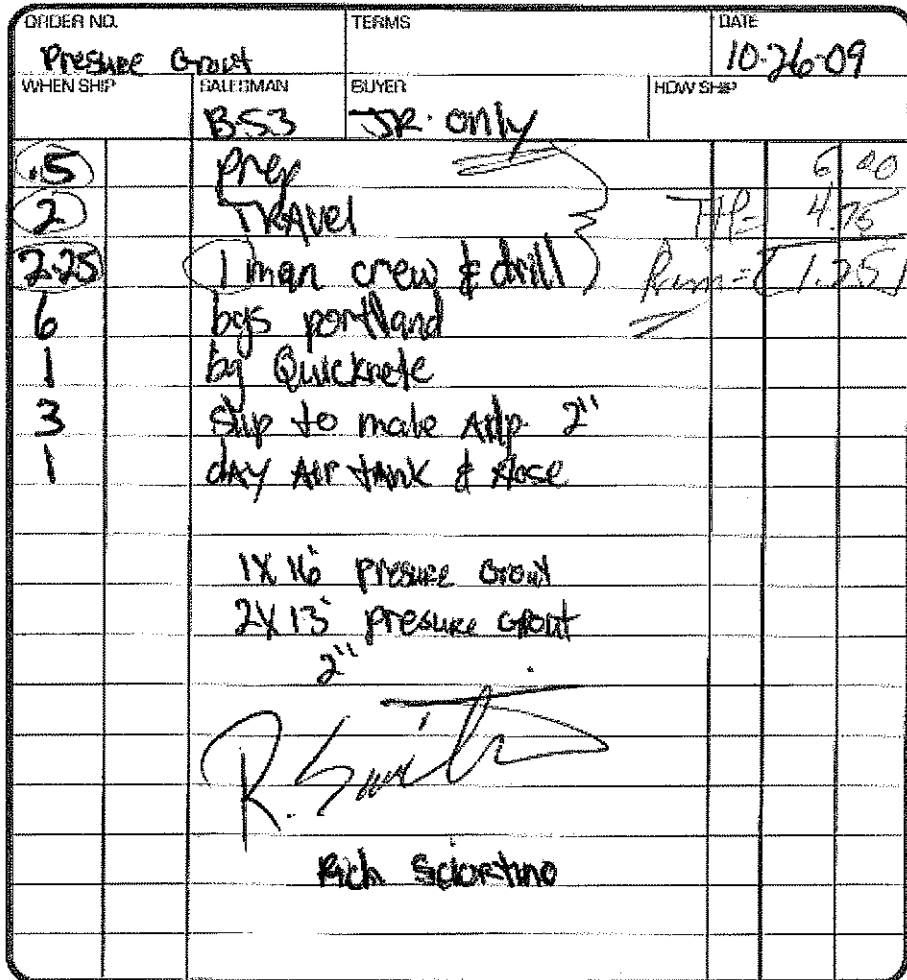 ORDER NO. TERMS DATE
Presure Grout 10-26-09
WHEN SHIP SALESMAN BUYER HOW SHIP
B-53 JR. only
.5 prep 6 00
2 TRAVEL 4.75
2.25 1 man crew & drill 1.25
6 bgs portland
1 bg Quickrete
3 slip to male Adp. 2"
1 dAY Air tANK & Hose
1X 16' presure Grout
2X 13' presure Grout
2"
R. Smith
Rich Sciortino